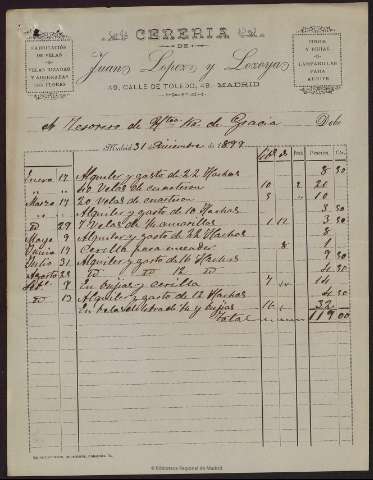 CERERIA
DE
Juan Lopez y Lozoya
49, CALLE DE TOLEDO, 49, MADRID
FABRICACIÓN
DE VELAS
VELAS RIZADAS
Y ADORNADAS
CON FLORES
PARA
ACEITE
A Tesorero de Ntra Sra de Gracia Debe
Madrid 31 Diciembre de 1899
Pesetas Cts.
Enero 17 Alquiler y gasto de 22 Hachas 8 50
" " 40 Velas de cuarteron 10 2 20
Marzo 17 20 velas de cuarteron 5 " 10
" " Alquiler y gasto de 10 Hachas 3 50
29 7 Velas 1 12 3 50
Mayo 9 Alquiler y gasto de 22 Hachas 8
Junio 17 Cerilla para encender 8 1
Julio 31 Alquiler y gasto de 10 Hachas
Agosto 28 12 4 50
Setbe 8 En bujias y cerilla 7 14
13 Alquiler y gasto de 12 Hachas 4 50
En velas y bujias 16 32
Total 119 00
©Biblioteca Regional de Madrid